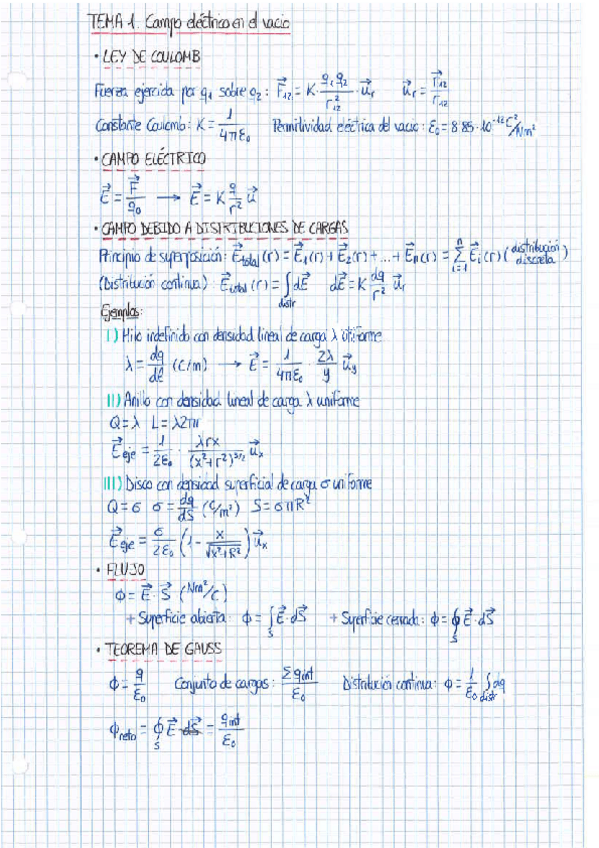 TEMA 1. Campo eléctrico en el vacío
• LEY DE COULOMB
Fuerza ejercida por q₁ sobre q₂: F⃗₁₂ = K · q₁q₂/r₁₂² · u⃗ᵣ   u⃗ᵣ = r⃗₁₂/r₁₂
Constante Coulomb: K = 1/4πε₀   Permitividad eléctrica del vacío: ε₀ = 8'85·10⁻¹² C²/Nm²
• CAMPO ELÉCTRICO
E⃗ = F⃗/q₀ → E⃗ = K q/r² u⃗
• CAMPO DEBIDO A DISTRIBUCIONES DE CARGAS
Principio de superposición: E⃗total(r) = E⃗₁(r) + E⃗₂(r) + ... + E⃗n(r) = Σᵢ₌₁ⁿ E⃗ᵢ(r) (distribución discreta)
(Distribución continua): E⃗total(r) = ∫distr dE⃗   dE⃗ = K dq/r² u⃗ᵣ
Ejemplos:
I) Hilo indefinido con densidad lineal de carga λ uniforme
λ = dq/dℓ (C/m) → E⃗ = 1/4πε₀ · 2λ/y u⃗y
II) Anillo con densidad lineal de carga λ uniforme
Q = λ L = λ2πr
E⃗eje = 1/2ε₀ · λrx/(x²+r²)^3/2 u⃗x
III) Disco con densidad superficial de carga σ uniforme
Q = σ σ = dq/dS (C/m²) S = σπR²
E⃗eje = σ/2ε₀ (1 - x/√x²+R²) u⃗x
• FLUJO
Φ = E⃗ · S⃗ (Nm²/C)
+ Superficie abierta: Φ = ∫S E⃗ · dS⃗   + Superficie cerrada: Φ = ∮S E⃗ · dS⃗
• TEOREMA DE GAUSS
Φ = q/ε₀   Conjunto de cargas: Σqint/ε₀   Distribución continua: Φ = 1/ε₀ ∫distr dq
Φneto = ∮S E⃗ dS⃗ = qint/ε₀